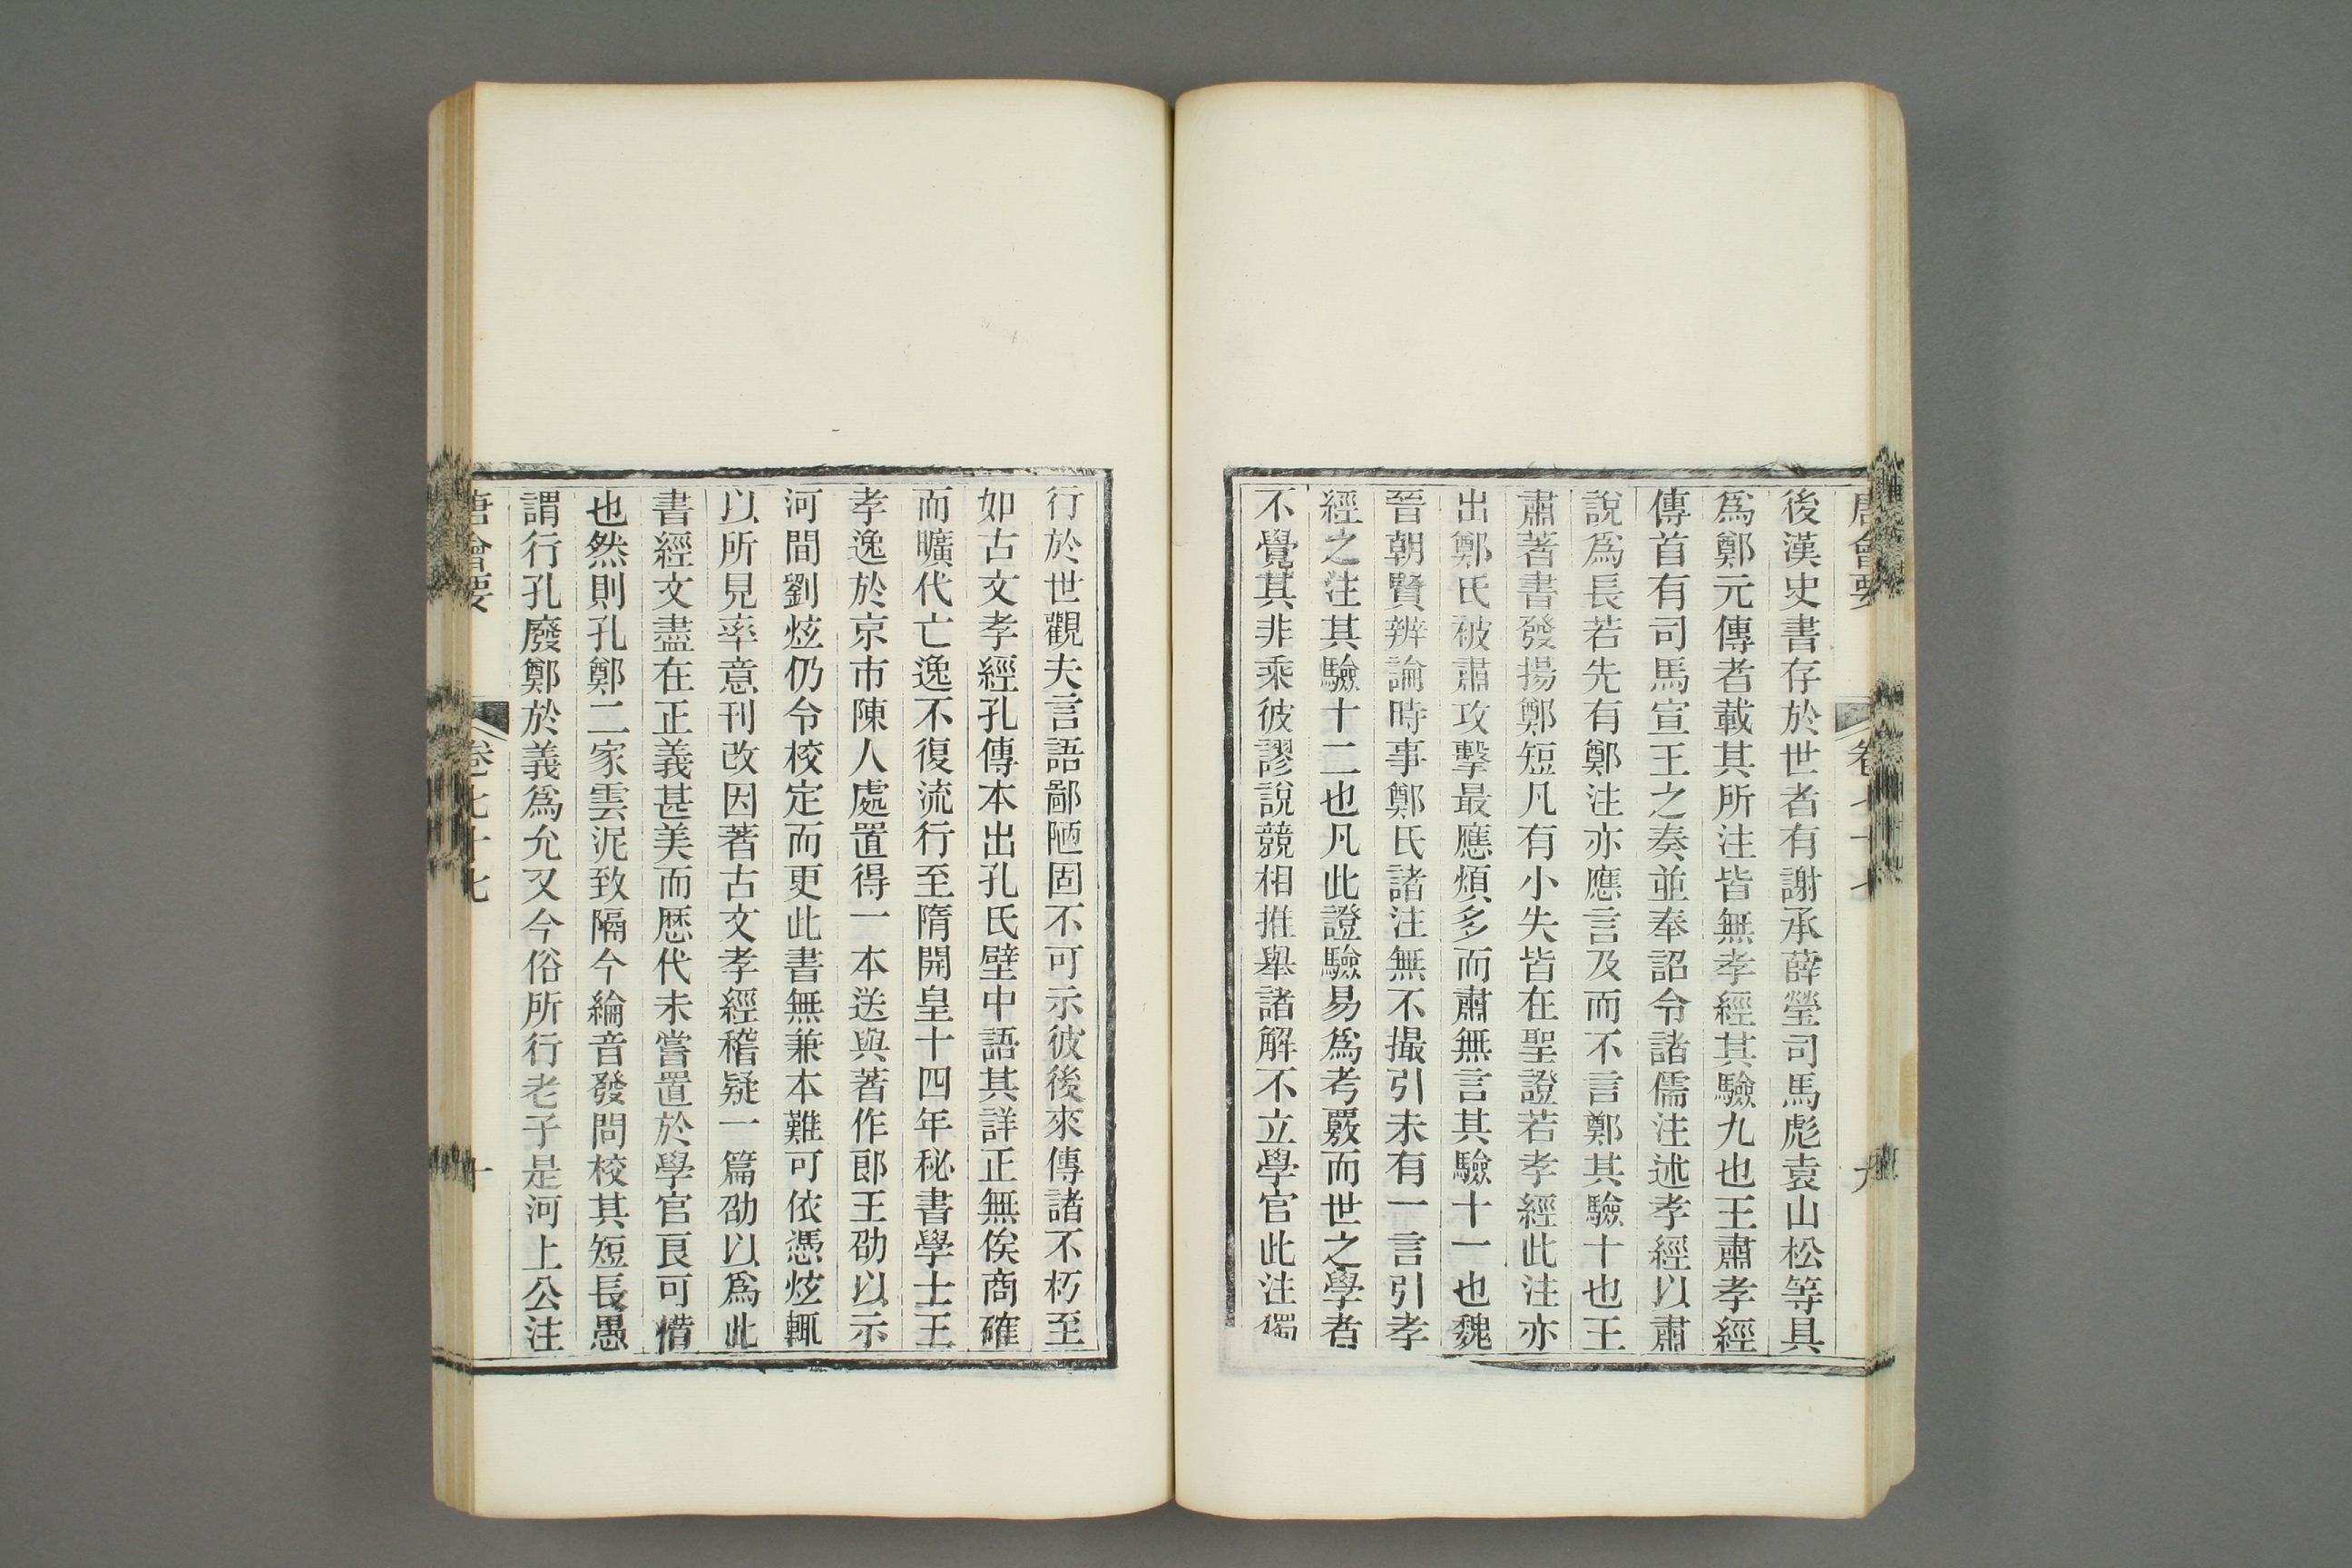 唐會要 卷七十七 九
後漢史書存於世者有謝承薛瑩司馬彪袁山松等具
爲鄭元傳者載其所注皆無孝經其驗九也王肅孝經
傳首有司馬宣王之奏並奉詔令諸儒注述孝經以肅
說爲長若先有鄭注亦應言及而不言鄭其驗十也王
肅著書發揚鄭短凡有小失皆在聖證若孝經此注亦
出鄭氏被肅攻擊最應煩多而肅無言其驗十一也魏
晉朝賢辨論時事鄭氏諸注無不撮引未有一言引孝
經之注其驗十二也凡此證驗易爲考覈而世之學者
不覺其非乘彼謬說競相推舉諸解不立學官此注獨
行於世觀夫言語鄙陋固不可示彼後來傳諸不朽至
如古文孝經孔傳本出孔氏壁中語其詳正無俟商確
而曠代亡逸不復流行至隋開皇十四年秘書學士王
孝逸於京市陳人處置得一本送與著作郎王劭以示
河間劉炫仍令校定而更此書無兼本難可依憑炫輒
以所見率意刊改因著古文孝經稽疑一篇劭以爲此
書經文盡在正義甚美而歷代未嘗置於學官良可惜
也然則孔鄭二家雲泥致隔今綸音發問校其短長愚
謂行孔廢鄭於義爲允又今俗所行老子是河上公注
唐會要 卷七十七 十